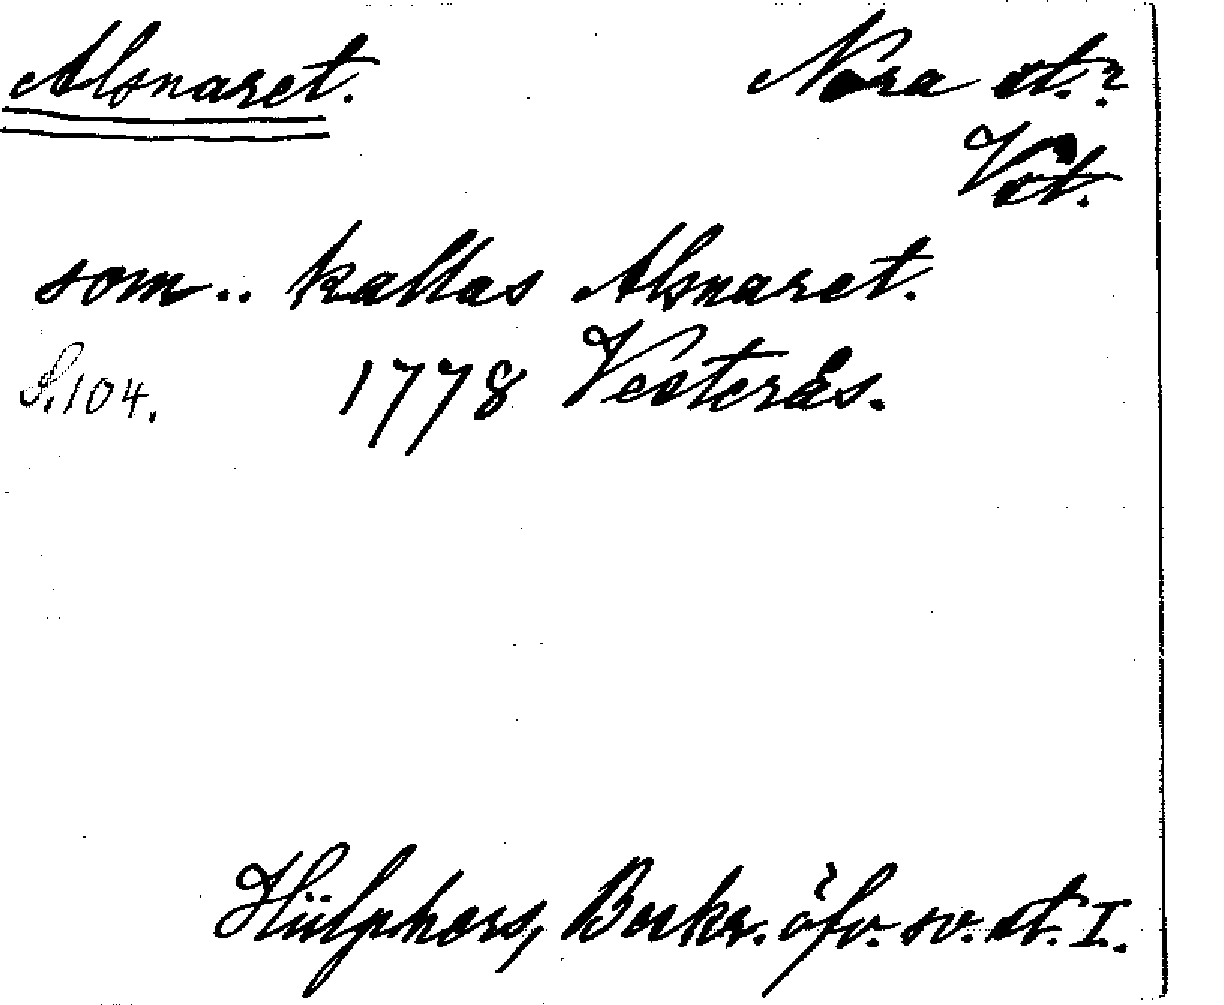 Alsnaret.
Nora st.?
Vst.
som .. kallas Alsnaret.
S. 104.
1778 Vesterås.
Hülphers, Beskr. öfv. sv. st. I.